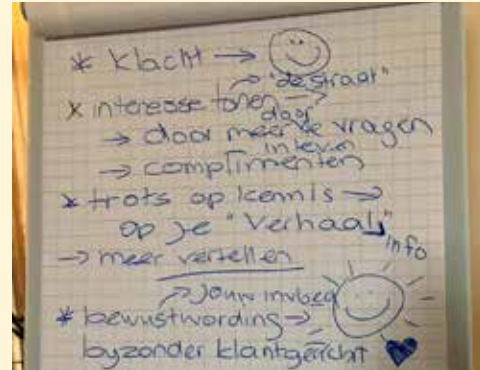 * klacht →
"de straat"
x interesse tonen →
door
→ door meer te vragen
inleven
→ complimenten
* trots op kennis →
op je "verhaal"
info
→ meer vertellen
→ jouw invloed
* bewustwording →
byzonder klantgericht